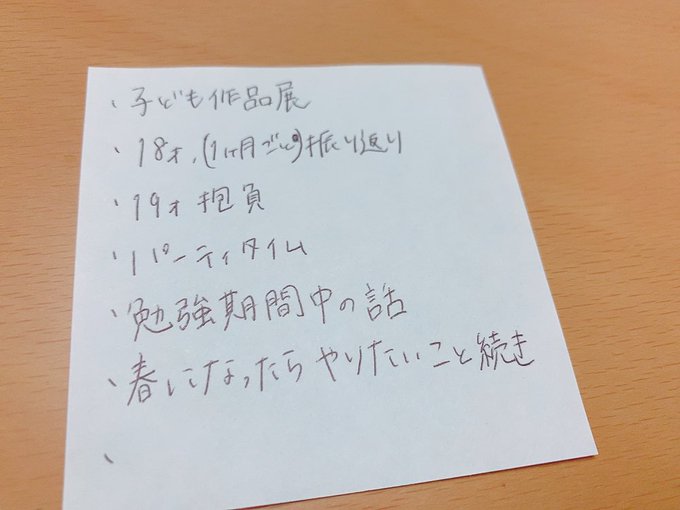 ・子ども作品展
・18才、(1ヶ月ごと)振り返り
・19才 抱負
・パーティタイム
・勉強期間中の話
・春になったらやりたいこと続き
・